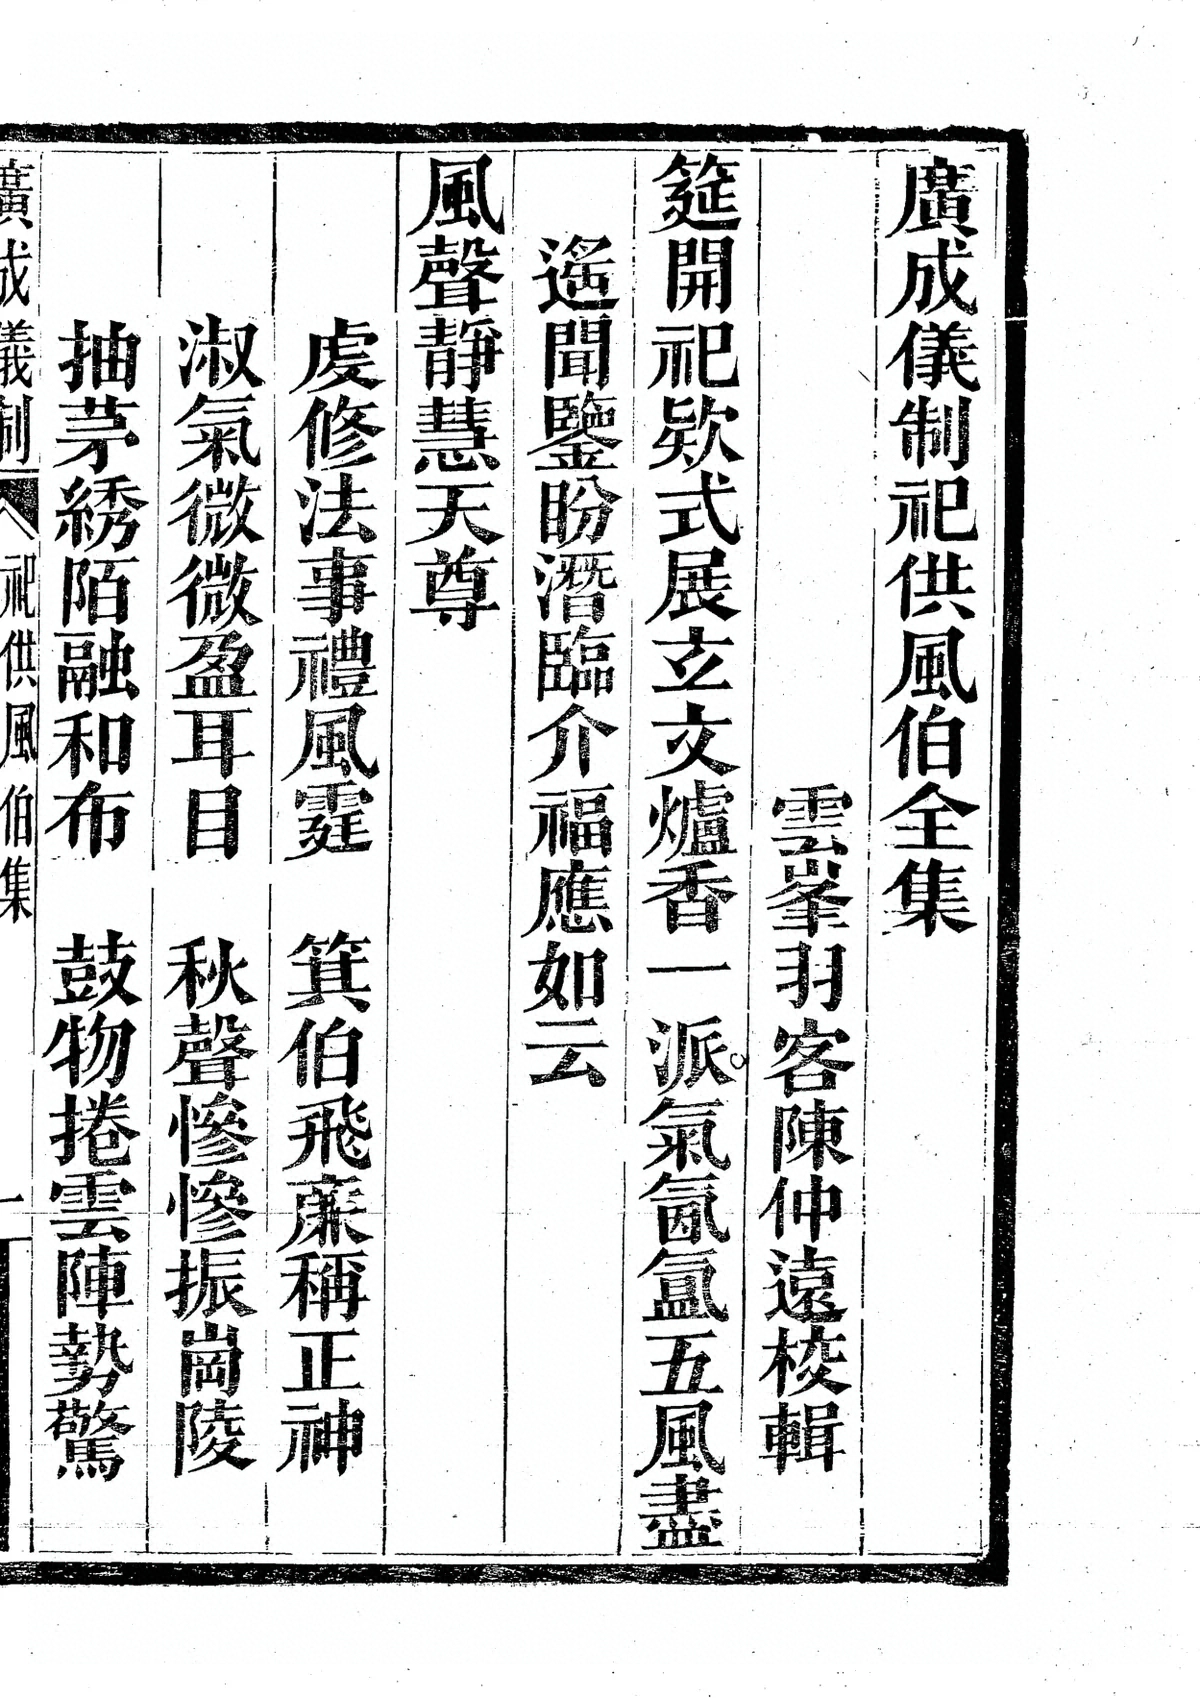 廣成儀制祀供風伯全集
雲峯羽客陳仲遠校輯
筵開祀欵式展立文爐香一派氣氤氳五風盡
遙聞鑒盼潛臨介福應如云
風聲靜慧天尊
虔修法事禮風霆　箕伯飛廉稱正神
淑氣微微盈耳目　秋聲慘慘振崗陵
抽茅綉陌融和布　鼓物捲雲陣勢驚
廣成儀制　祀供風伯集　一